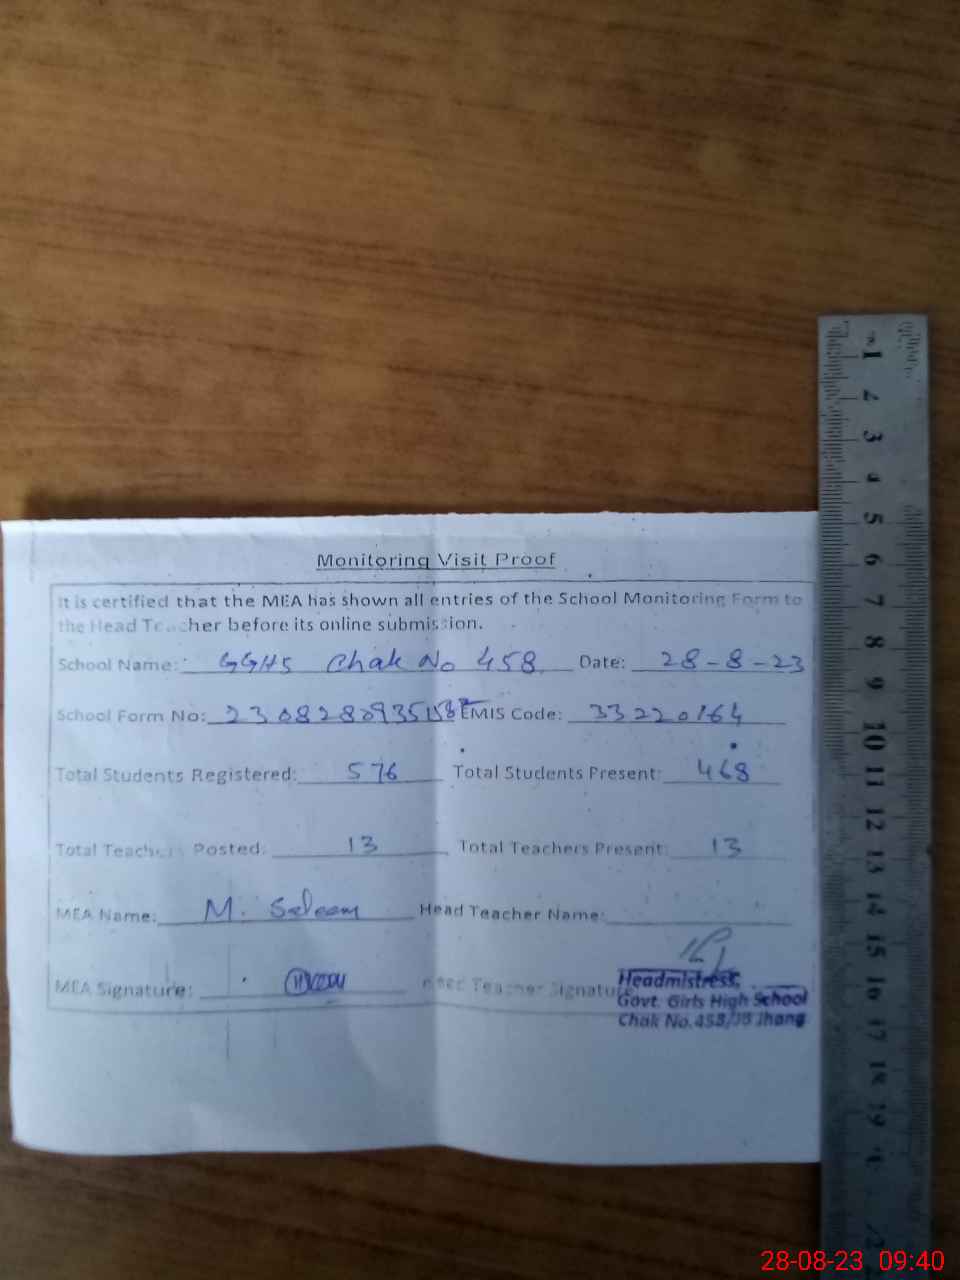 Monitoring Visit Proof
It is certified that the MEA has shown all entries of the School Monitoring Form to
the Head Teacher before its online submission.
School Name: GGHS Chak No 458 Date: 28-8-23
School Form No: EMIS Code: 33220164
Total Students Registered: 576 Total Students Present: 468
Total Teachers Posted: 13 Total Teachers Present: 13
MEA Name: M. Saleem Head Teacher Name:
MEA Signature: Teacher Signature
Headmistress,
Govt. Girls High School
Chak No. 458/JB Jhang
1
2
3
4
5
6
7
8
9
10
11
12
13
14
15
16
17
18
19
28-08-23 09:40